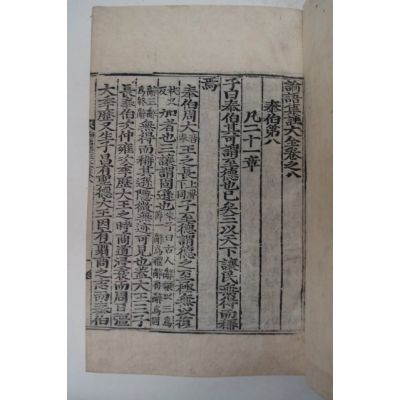 論語集註大全卷之八
泰伯第八
凡二十一章
子曰泰伯其可謂至德也已矣三以天下讓民無得而稱
焉
泰伯周大王之長子至德謂德之至極無以復
加者也三讓謂固遜也
無得而稱其遜隱微無迹可見也蓋大王三子
長泰伯次仲雍次季歷大王之時商道浸衰而周日彊
大季歷又生子昌有聖德大王因有翦商之志而泰伯